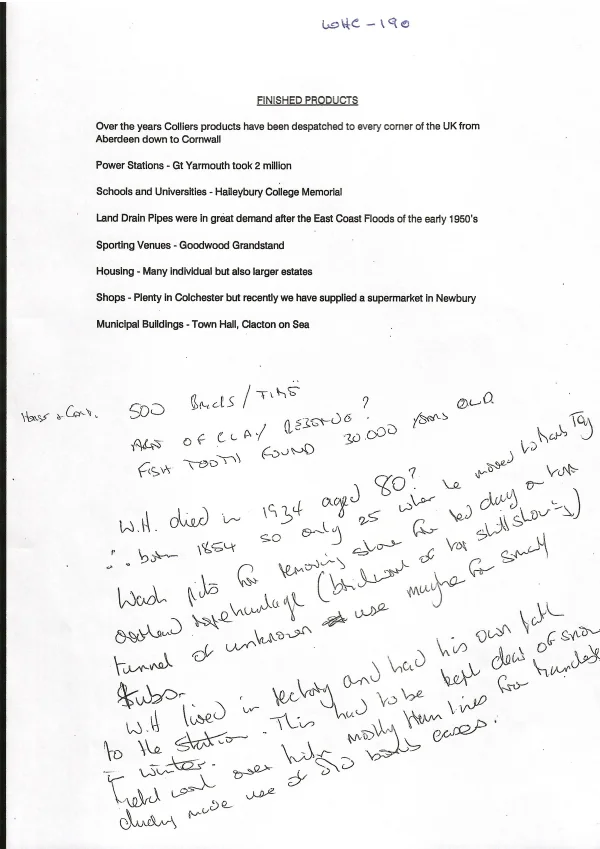 WHC - 190
FINISHED PRODUCTS
Over the years Colliers products have been despatched to every corner of the UK from
Aberdeen down to Cornwall
Power Stations - Gt Yarmouth took 2 million
Schools and Universities - Haileybury College Memorial
Land Drain Pipes were in great demand after the East Coast Floods of the early 1950's
Sporting Venues - Goodwood Grandstand
Housing - Many individual but also larger estates
Shops - Plenty in Colchester but recently we have supplied a supermarket in Newbury
Municipal Buildings - Town Hall, Clacton on Sea
Horse & Cart. 500 Bricks/TIME
OF CLAY ?
FISH TOOTH FOUND 30.000 YEARS OLD
W.H. died in 1934 aged 80?
∴ born 1854 so only 25 when he moved to Marks Tey
Wash pits for removing stone for red day
(brickwork of top still showing)
tunnel of unknown use maybe for small
tubs.
W.H lived in rectory and had his own path
to the station. This had to be kept clear of snow
in winter.
over mostly
made use of old cases.